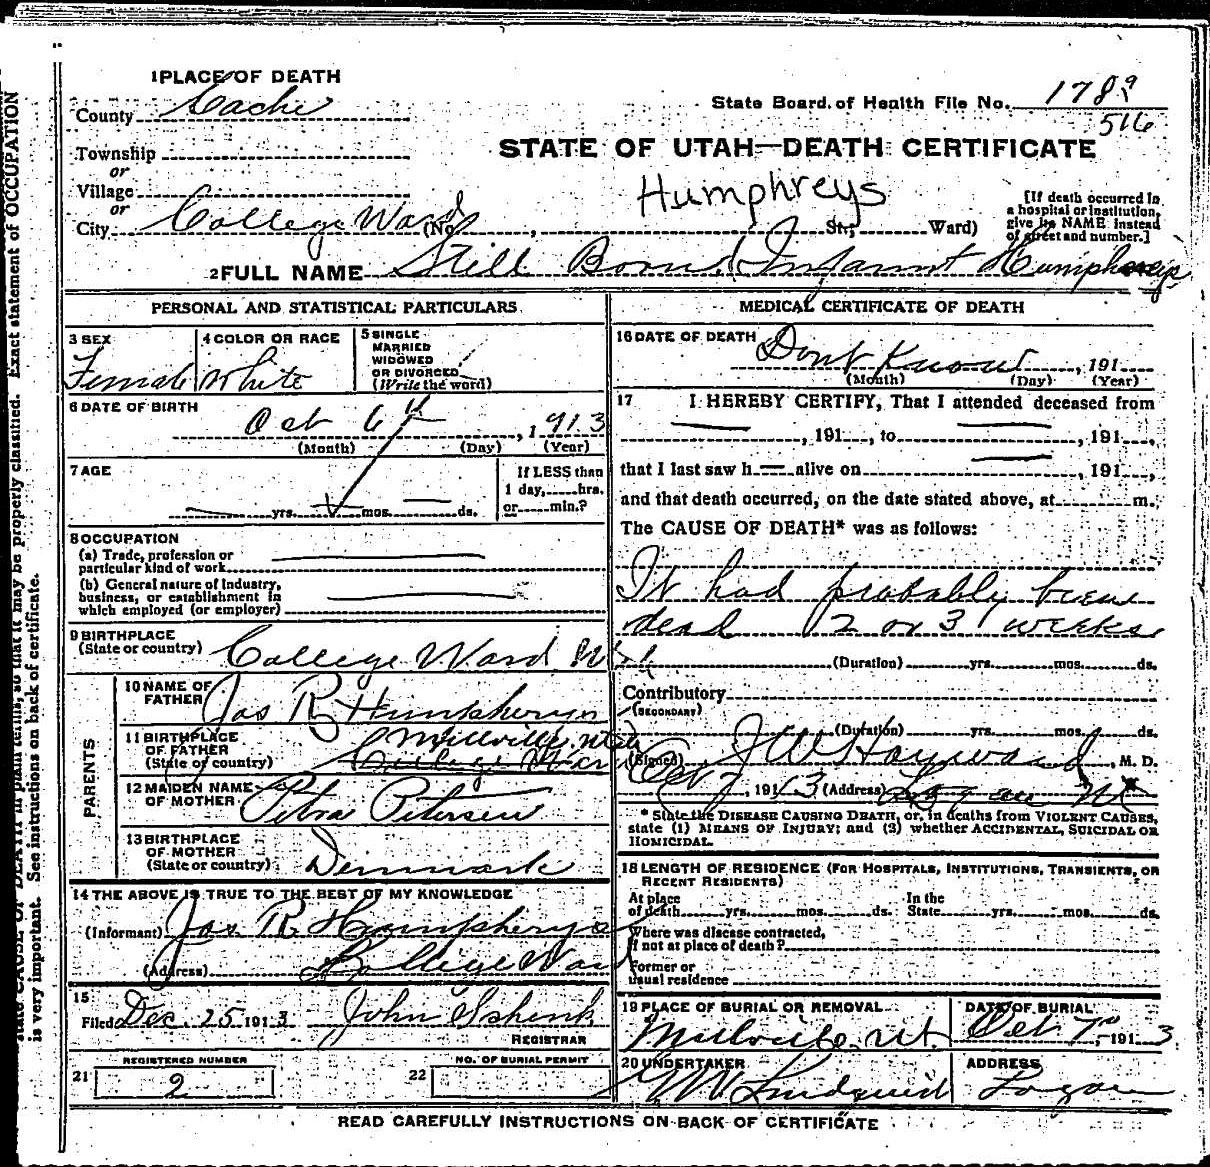 1 PLACE OF DEATH
County Cache
State Board of Health File No. 1789
516
Township
or
Village
or
City College Ward (No. , St; Ward)
STATE OF UTAH—DEATH CERTIFICATE
Humphreys
[If death occurred in
a hospital or institution,
give its NAME instead
of street and number.]
2 FULL NAME Still Born Infant Humphreys
PERSONAL AND STATISTICAL PARTICULARS
3 SEX
Female
4 COLOR OR RACE
White
5 SINGLE
MARRIED
WIDOWED
OR DIVORCED
(Write the word)
6 DATE OF BIRTH
Oct 6th, 1913
(Month) (Day) (Year)
7 AGE
yrs. mos. ds.
If LESS than
1 day, hrs.
or min.?
8 OCCUPATION
(a) Trade, profession or
particular kind of work
(b) General nature of Industry,
business, or establishment in
which employed (or employer)
9 BIRTHPLACE
(State or country) College Ward Utah
PARENTS
10 NAME OF
FATHER Jas R Humpherys
11 BIRTHPLACE
OF FATHER
(State or country) Millville Utah
College Ward
12 MAIDEN NAME
OF MOTHER Petra Petersen
13 BIRTHPLACE
OF MOTHER
(State or country) Denmark
14 THE ABOVE IS TRUE TO THE BEST OF MY KNOWLEDGE
(Informant) Jas R Humpherys
(Address) College Ward
15
Filed Dec. 25 1913 John Schenk
REGISTRAR
REGISTERED NUMBER
21 2
NO. OF BURIAL PERMIT
22
MEDICAL CERTIFICATE OF DEATH
16 DATE OF DEATH
Dont Know, 191
(Month) (Day) (Year)
17 I HEREBY CERTIFY, That I attended deceased from
, 191 , to , 191 ,
that I last saw h alive on , 191 ,
and that death occurred, on the date stated above, at m.
The CAUSE OF DEATH* was as follows:
It had probably been
dead 2 or 3 weeks
(Duration) yrs. mos. ds.
Contributory
(SECONDARY)
(Duration) yrs. mos. ds.
(Signed) J W Hayward, M. D.
Oct 7, 1913 (Address) Logan Ut
* State the DISEASE CAUSING DEATH, or, in deaths from VIOLENT CAUSES,
state (1) MEANS OF INJURY; and (2) whether ACCIDENTAL, SUICIDAL OR
HOMICIDAL.
18 LENGTH OF RESIDENCE (FOR HOSPITALS, INSTITUTIONS, TRANSIENTS, OR
RECENT RESIDENTS)
At place
of death yrs. mos. ds.
In the
State yrs. mos. ds.
Where was disease contracted,
if not at place of death?
Former or
usual residence
19 PLACE OF BURIAL OR REMOVAL
Millville Ut.
DATE OF BURIAL
Oct 7th, 1913
20 UNDERTAKER
Lindquist
ADDRESS
Logan
READ CAREFULLY INSTRUCTIONS ON BACK OF CERTIFICATE
state CAUSE OF DEATH in plain terms, so that it may be properly classified. Exact statement of OCCUPATION
is very important. See instructions on back of certificate.